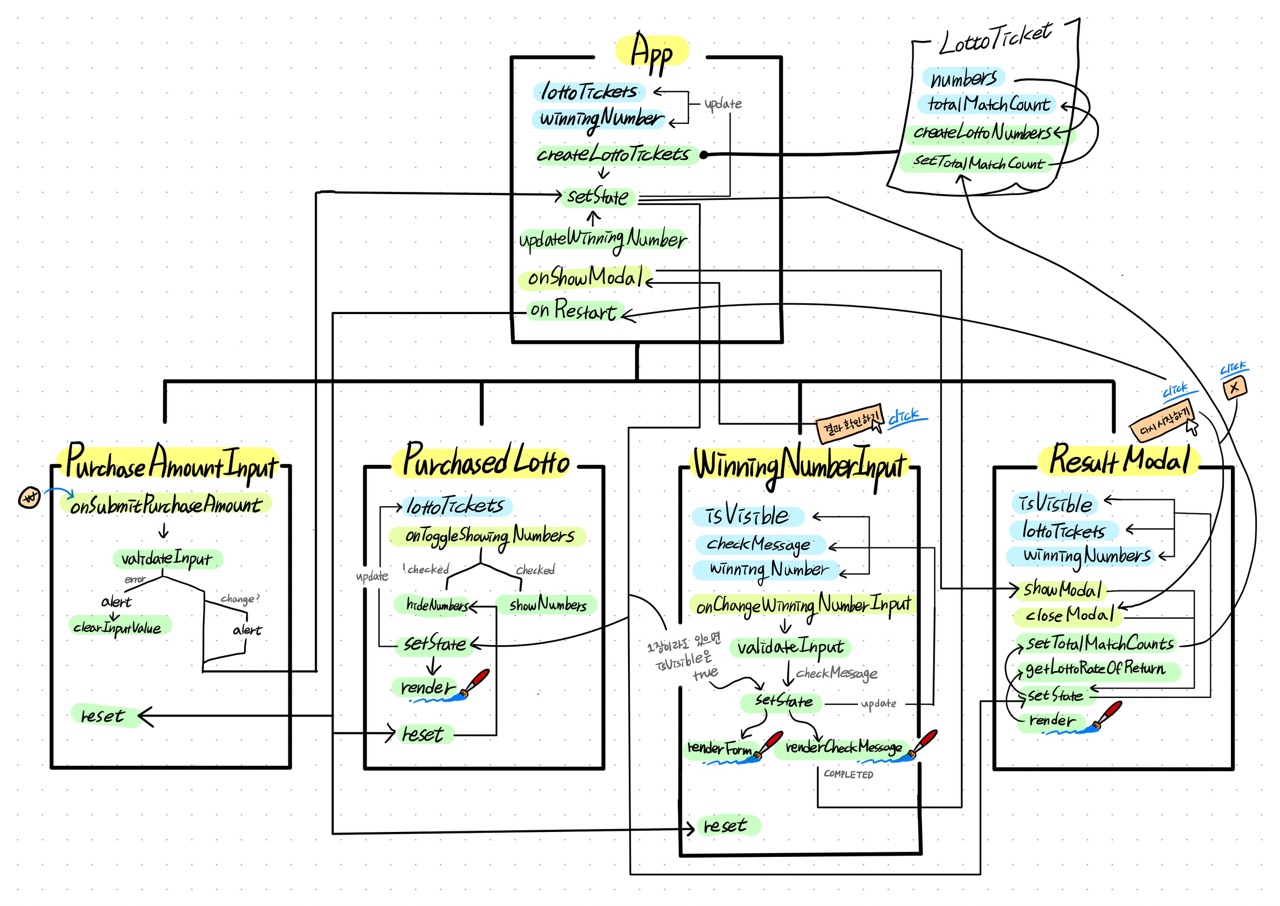 App
lottoTickets
winningNumber
update
createLottoTickets
setState
updateWinningNumber
onShowModal
onRestart
LottoTicket
numbers
totalMatchCount
createLottoNumbers
setTotalMatchCount
PurchaseAmountInput
₩
onSubmitPurchaseAmount
validateInput
error
alert
clearInputValue
change?
alert
reset
Purchased Lotto
lottoTickets
onToggleShowing Numbers
!checked
checked
update
hideNumbers
showNumbers
setState
render
reset
결과 확인하기
click
WinningNumberInput
isVisible
checkMessage
winning Number
onChangeWinningNumberInput
validateInput
checkMessage
1장이라도 있으면
isVisible은
true
setState
update
renderForm
renderCheckMessage
COMPLETED
reset
click
다시 시작하기
click
X
Result Modal
isVisible
lottoTickets
winningNumbers
showModal
closeModal
setTotalMatchCounts
getLottoRateOfReturn
setState
render